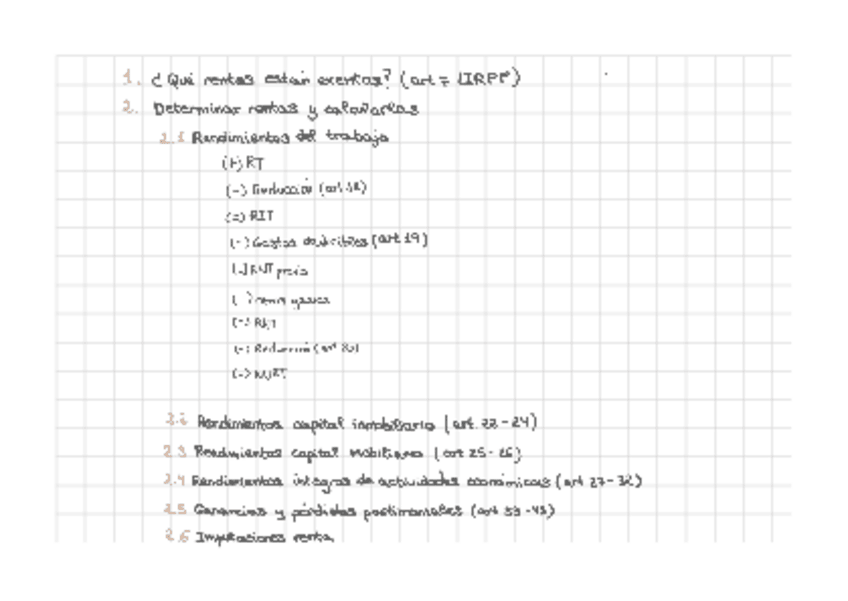 1. ¿Qué rentas están exentas? (art 7 LIRPF)
2. Determinar rentas y calcularlas
2.1 Rendimientos del trabajo
(+) RT
(-) Reducción (art 18)
(=) RIT
(-) Gastos deducibles (art 19)
(=) RNT previo
(-) otros gastos
(=) RNT
(-) Reducción (art 20)
(=) RNRT
2.2 Rendimientos capital inmobiliario (art. 22-24)
2.3 Rendimientos capital mobiliario (art 25-26)
2.4 Rendimientos íntegros de actividades económicas (art 27-32)
2.5 Ganancias y pérdidas patrimoniales (art 33-43)
2.6 Imputaciones renta